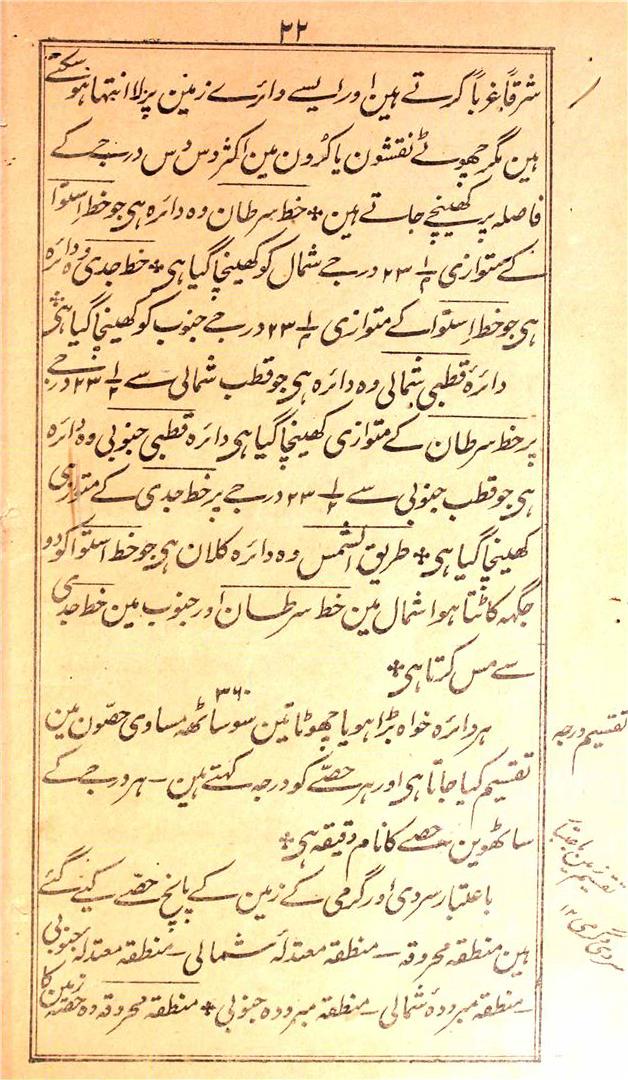 ۲۲
شرقاً غرباً کرتے ہین اور ایسے دائرے زمین پر لا انتہا ہو سکتے
ہین مگر چھوٹے نقشون یا کرون مین اکثر دس دس درجے کے
فاصلہ پر کھینچے جاتے ہین * خط سرطان وہ دائرہ ہی جو خط اِستوا
کے متوازی ۲۳ ۱/۲ درجے شمال کو کھینچا گیا ہی * خط جدی وہ دائرہ
ہی جو خط اِستوا کے متوازی ۲۳ ۱/۲ درجے جنوب کو کھینچا گیا ہی *
دائرۂ قطبی شمالی وہ دائرہ ہی جو قطب شمالی سے ۲۳ ۱/۲ درجے
پر خط سرطان کے متوازی کھینچا گیا ہی دائرہ قطبی جنوبی وہ دائرہ
ہی جو قطب جنوبی سے ۲۳ ۱/۲ درجے پر خط جدی کے متوازی
کھینچا گیا ہی * طریق الشمس وہ دائرہ کلان ہی جو خط استوا کو دو
جگہہ کاٹتا ہوا شمال مین خط سرطان اور جنوب مین خط جدی
سے مس کرتا ہی *
۳۶۰
ہر دائرہ خواہ بڑا ہو یا چھوٹا تین سو ساٹھہ مساوی حصّون مین
تقسیم درجہ
تقسیم کیا جاتا ہی اور ہر حصّے کو درجہ کہتے ہین - ہر درجے کے
ساٹھوین حصے کا نام دقیقہ ہی *
باعتبار سردی اور گرمی کے زمین کے پانچ حصّے کیے گئے
تقسیم زمین باعتبار
سردی و گرمی ۱۲
ہین منطقہ محروقہ - منطقہ معتدلۂ شمالی - منطقہ معتدلہ جنوبی
- منطقہ مبرودۂ شمالی - منطقہ مبرودہ جنوبی * منطقہ محروقہ وہ حصّہ زمین کا